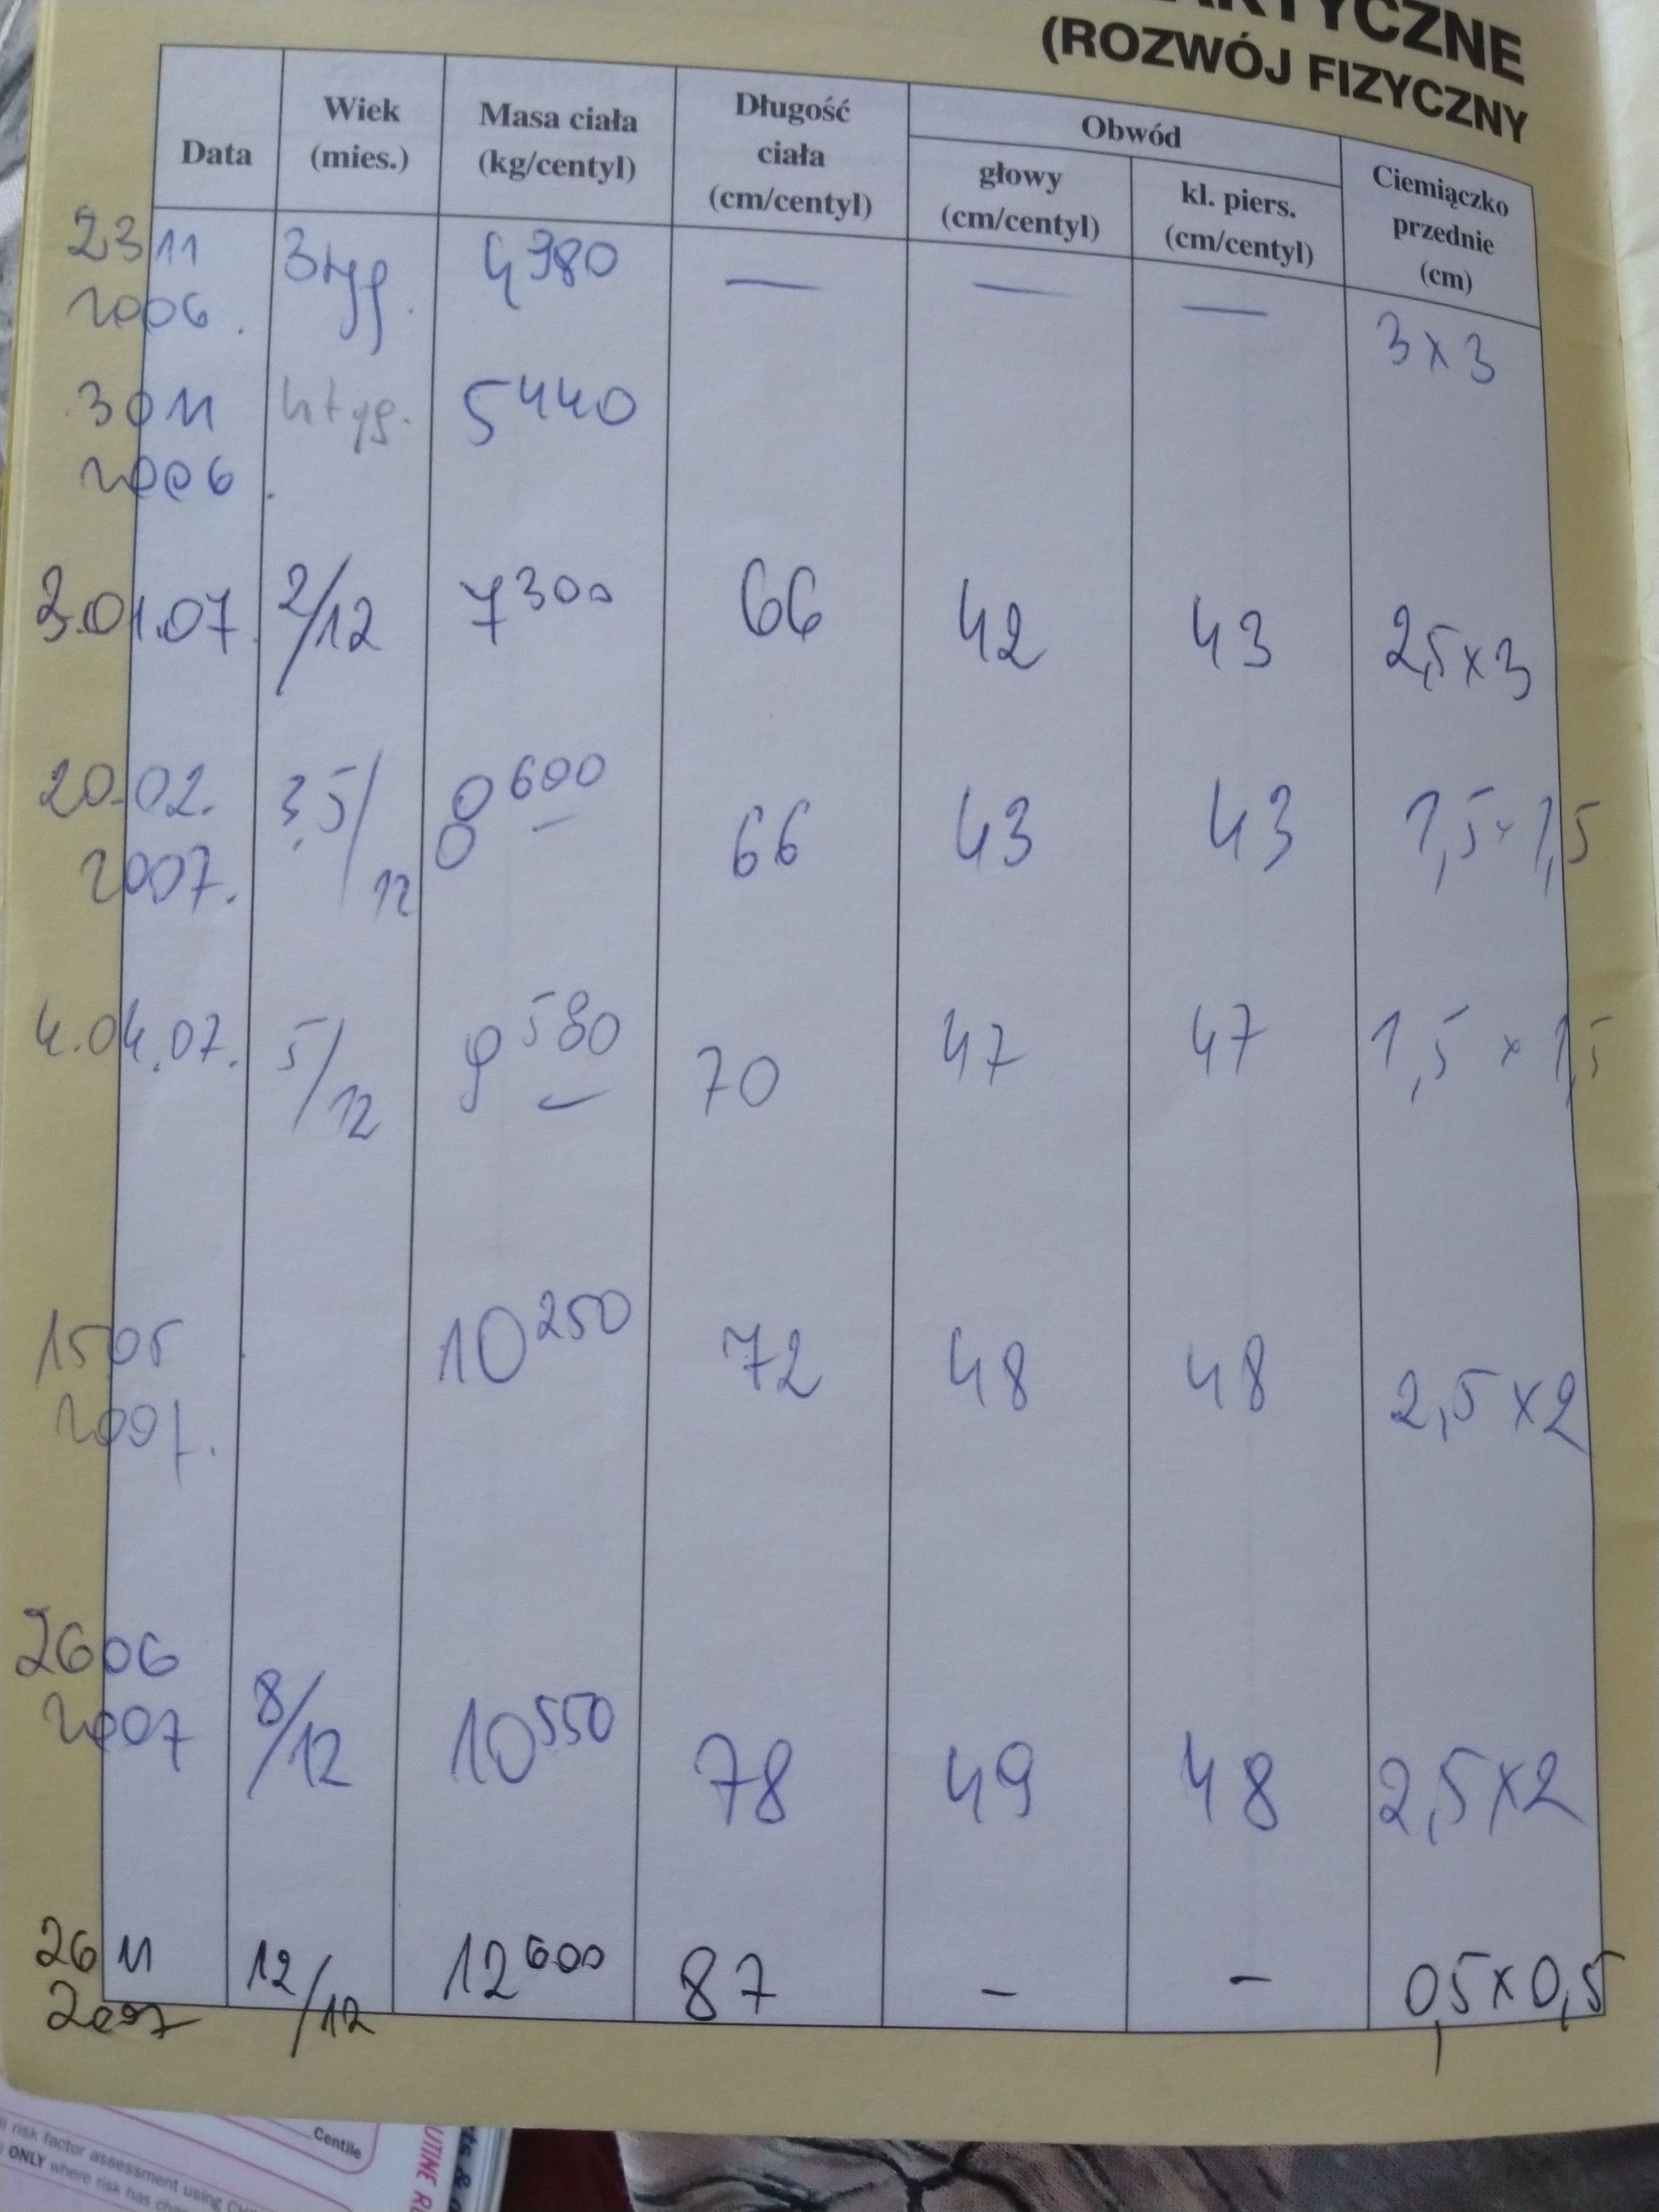 (ROZWÓJ FIZYCZNY
Data
Wiek
(mies.)
Masa ciała
(kg/centyl)
Długość
ciała
(cm/centyl)
Obwód
głowy
(cm/centyl)
kl. piers.
(cm/centyl)
Ciemiączko
przednie
(cm)
23 11
2006.
3 tyg.
4980
—
—
—
3 x 3
30 11
2006.
4 tyg.
5440
3.01.07.
2/12
7300
66
42
43
2,5 x 3
20.02.
2007.
3,5/12
8600
66
43
43
1,5 x 1,5
4.04.07.
5/12
9580
70
47
47
1,5 x 1,5
15 05
2007.
10250
72
48
48
2,5 x 2
26 06
2007
8/12
10550
78
49
48
2,5 x 2
26 11
2007
12/12
12600
87
-
-
0,5 x 0,5
Centile
risk factor assessment using
ONLY where risk has